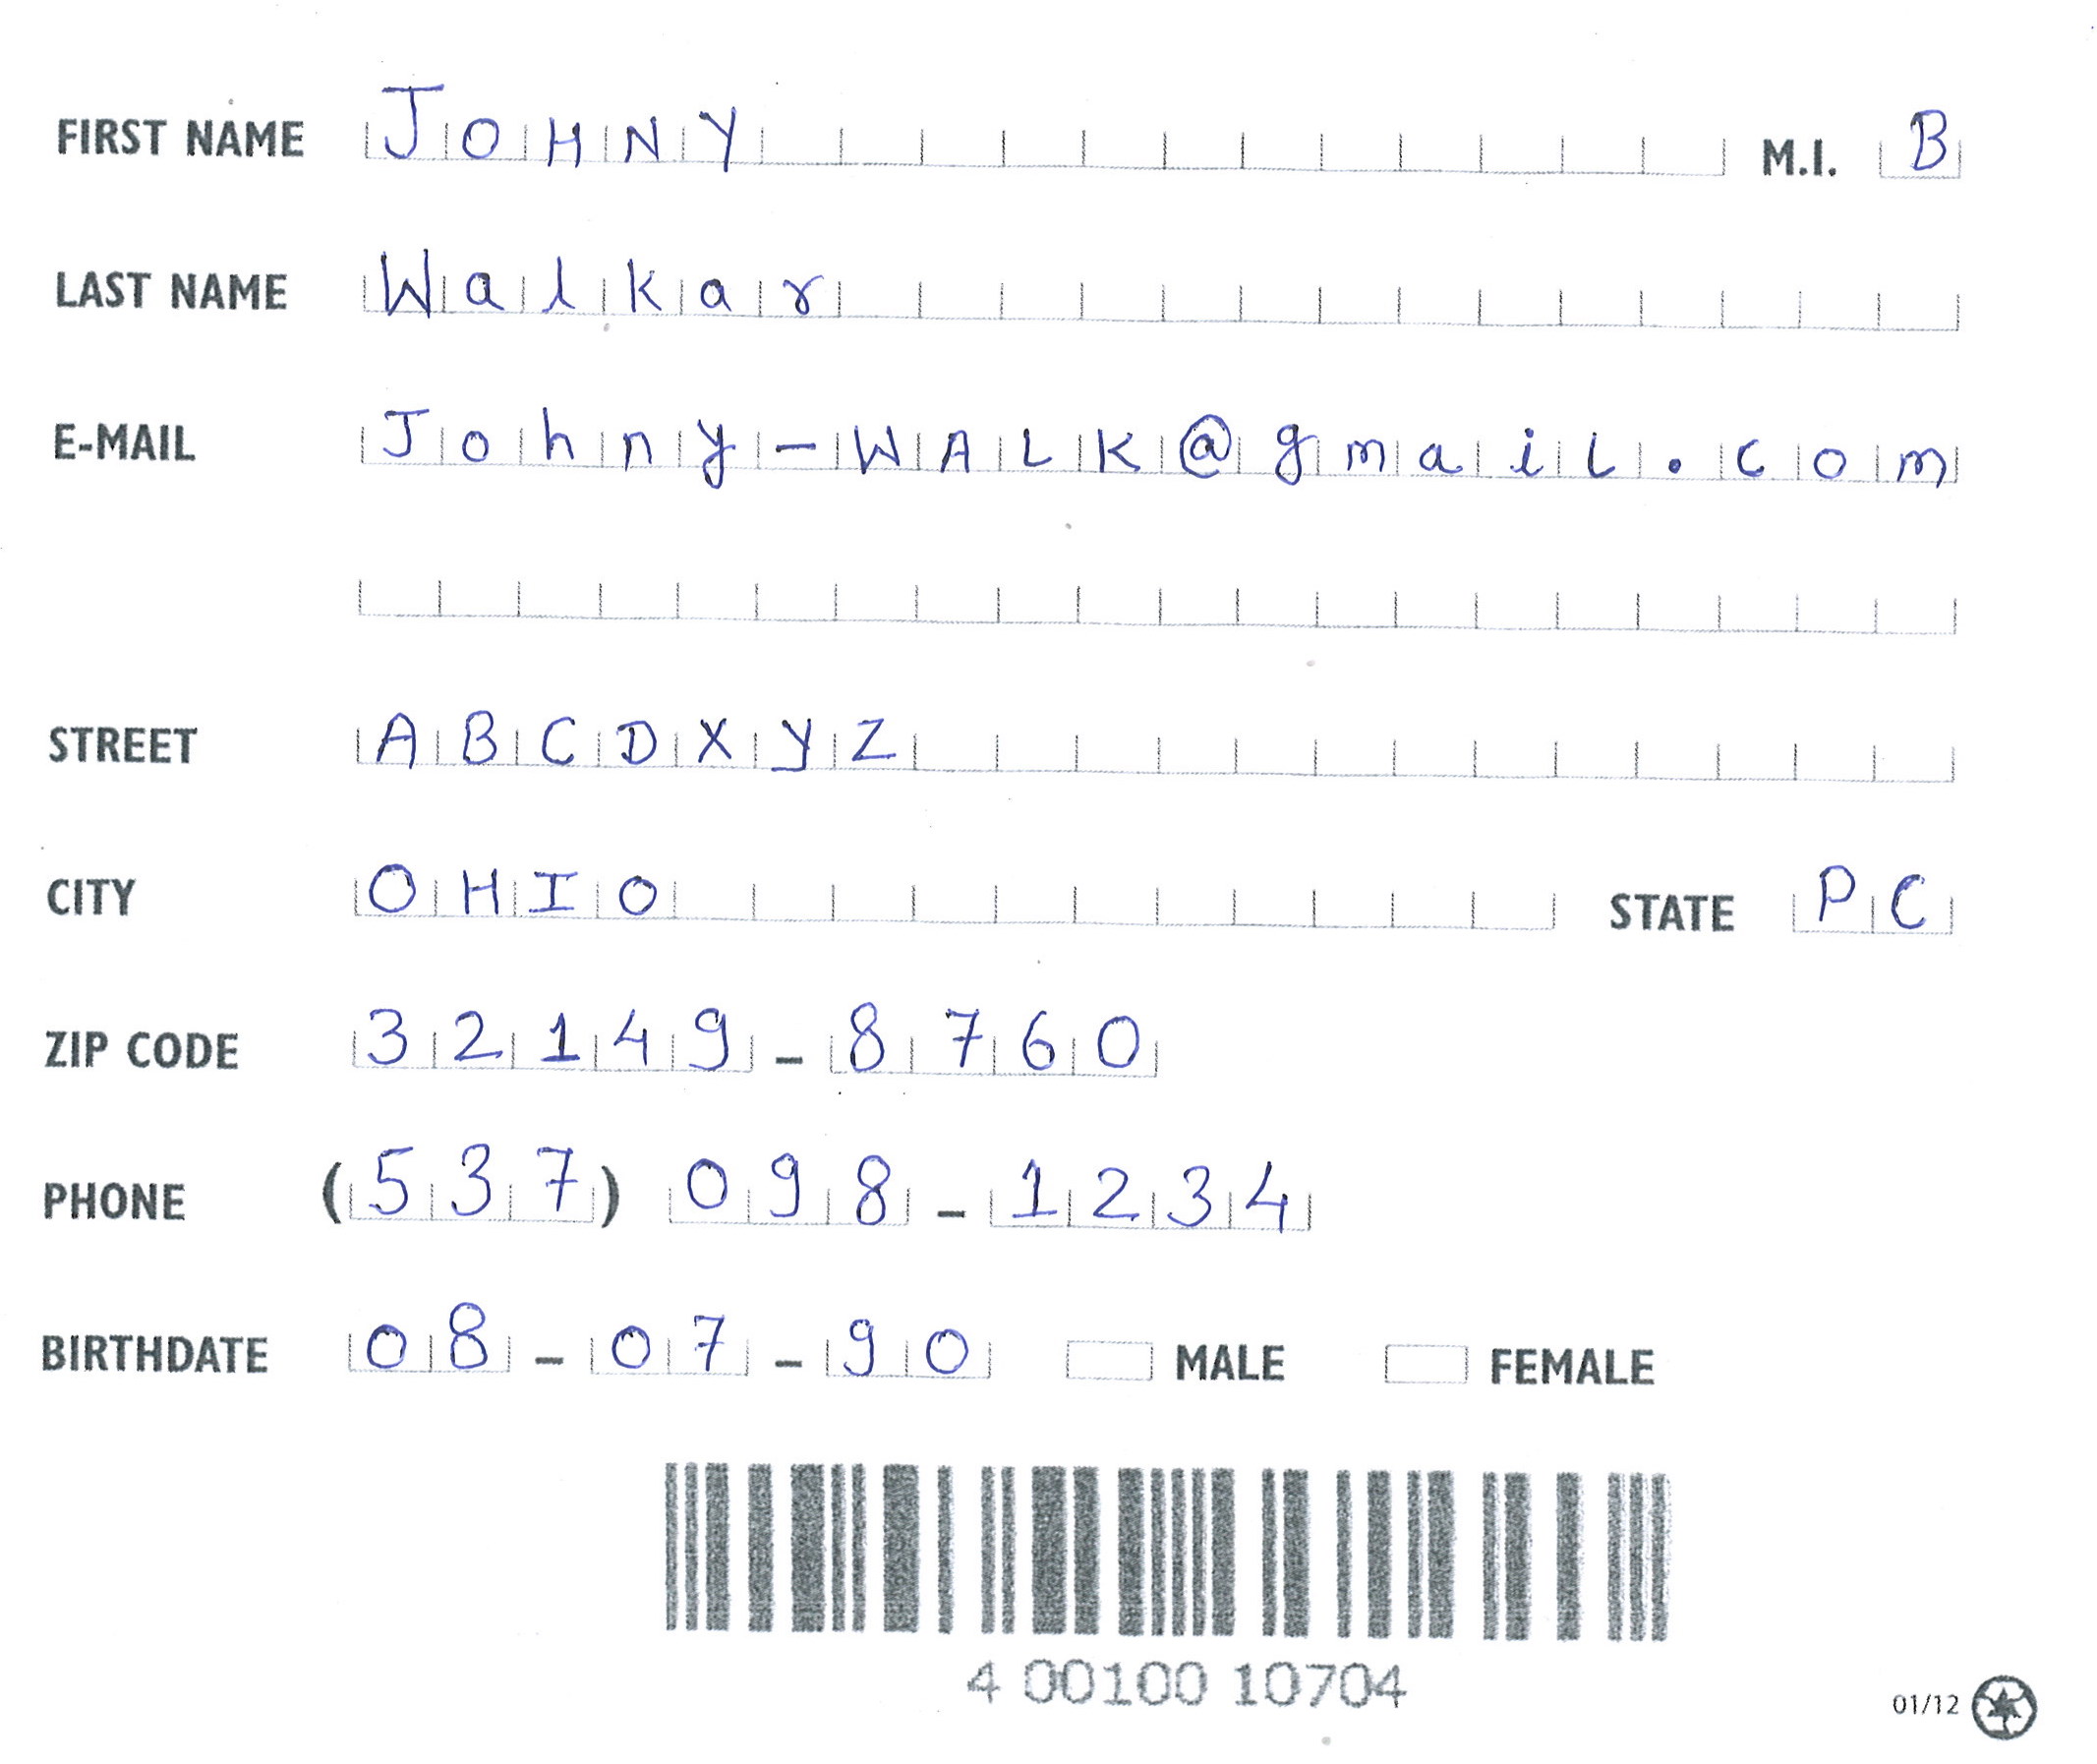 FIRST NAME JOHNY M.I. B
LAST NAME Walkar
E-MAIL Johny-WALK@gmail.com
STREET ABCDXYZ
CITY OHIO STATE PC
ZIP CODE 32149-8760
PHONE (537) 098-1234
BIRTHDATE 08-07-90 MALE FEMALE
4 00100 10704
01/12